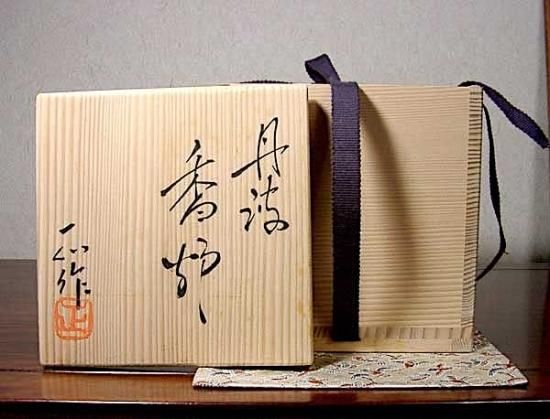 丹波
香炉
一心作